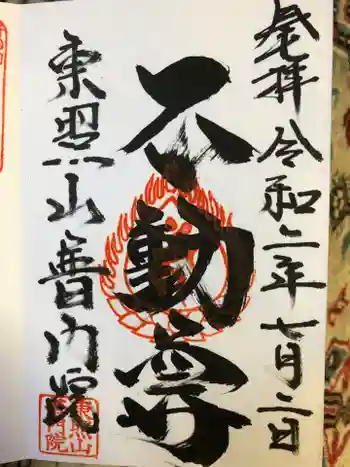 奉拝 令和二年七月二日
不動尊
東照山普門院
東照山
普門院